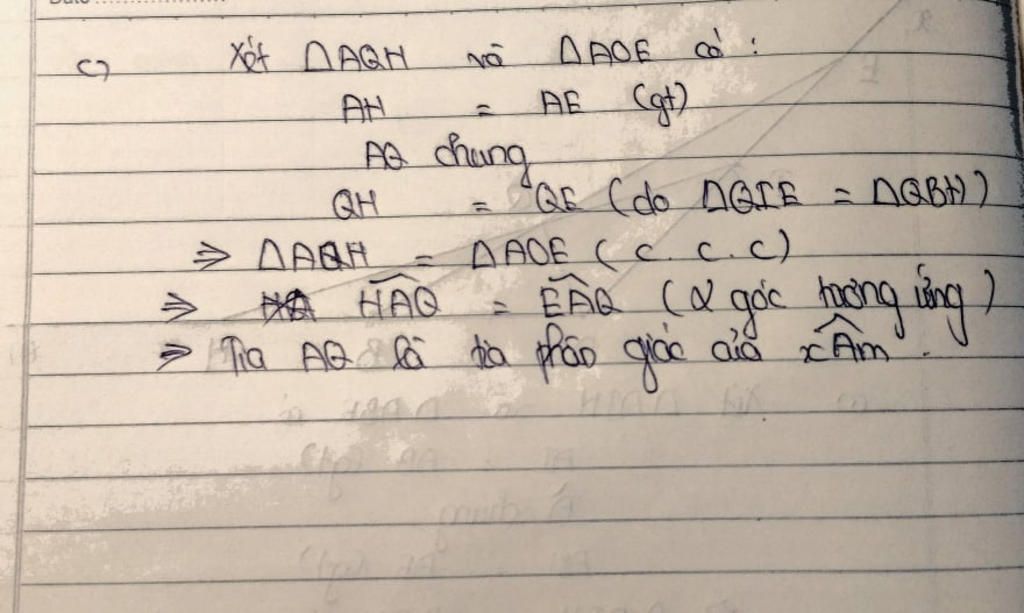 c) Xét ΔAQH và ΔAQE có :
AH = AE (gt)
AQ chung
QH = QE (do ΔQIE = ΔQBH)
⇒ ΔAQH = ΔAQE ( c. c. c)
⇒ HAQ^ = EAQ^ (2 góc tương ứng)
⇒ Tia AQ là tia phân giác của xAm^ .